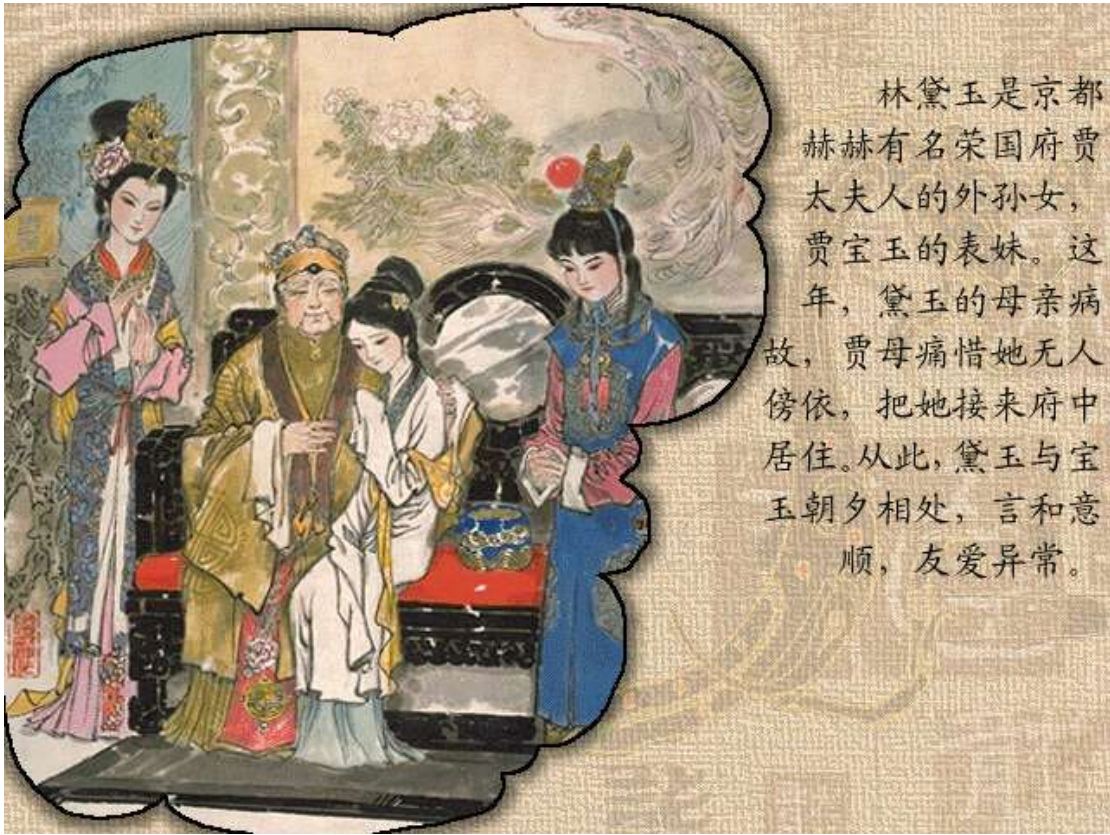 林黛玉是京都
赫赫有名荣国府贾
太夫人的外孙女，
贾宝玉的表妹。这
年，黛玉的母亲病
故，贾母痛惜她无人
傍依，把她接来府中
居住。从此，黛玉与宝
玉朝夕相处，言和意
顺，友爱异常。